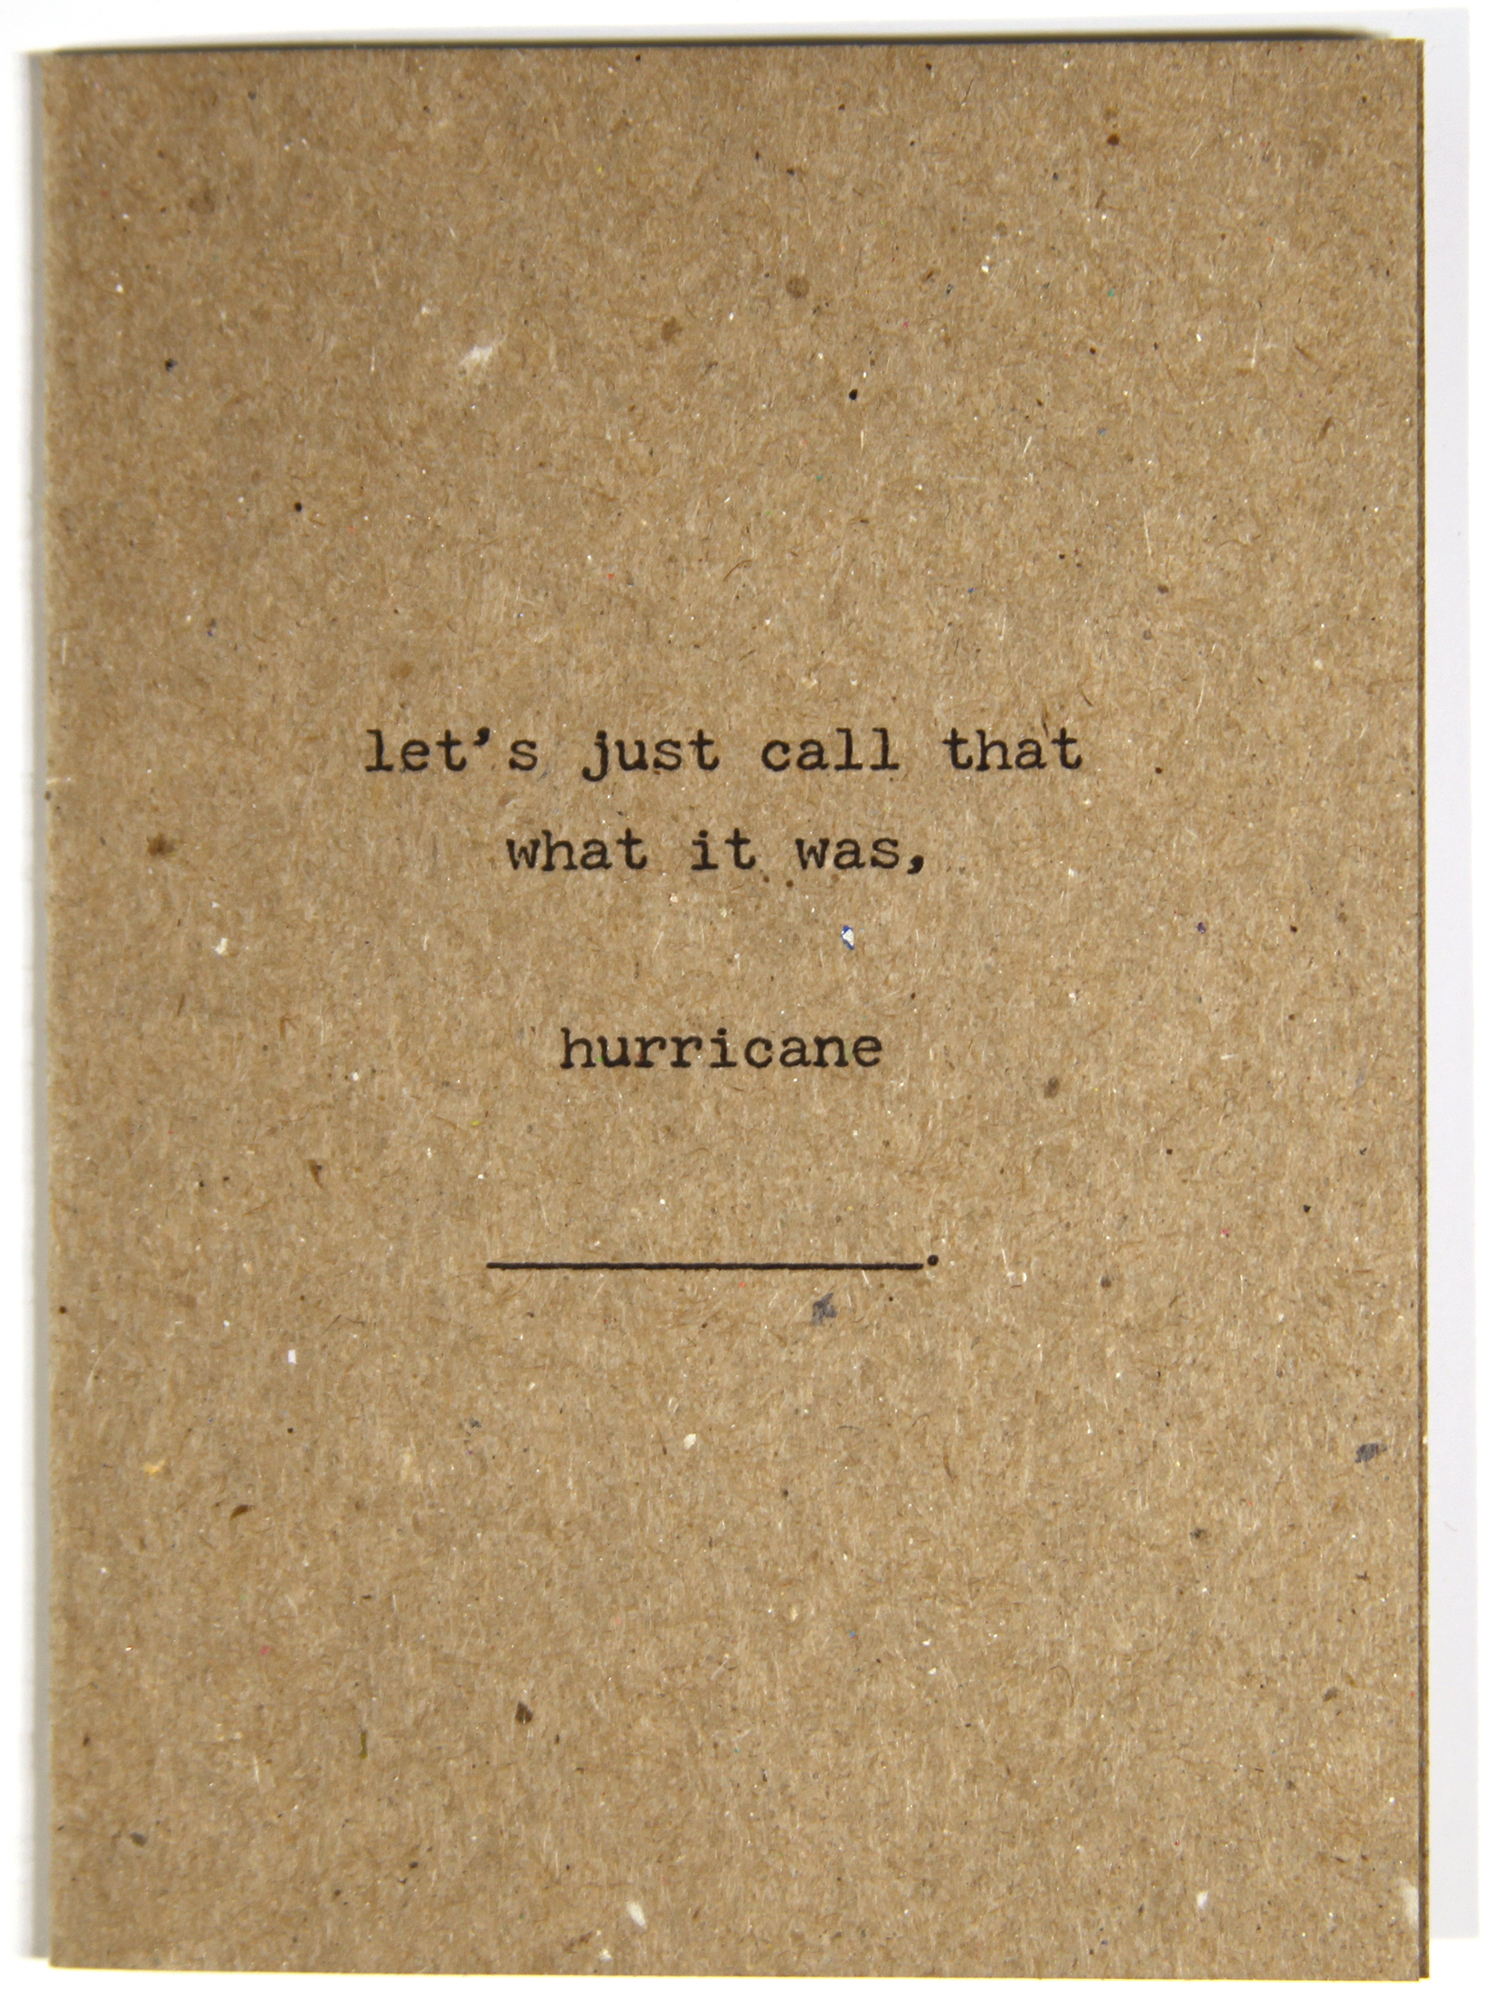 let's just call that
what it was,
hurricane
__________.